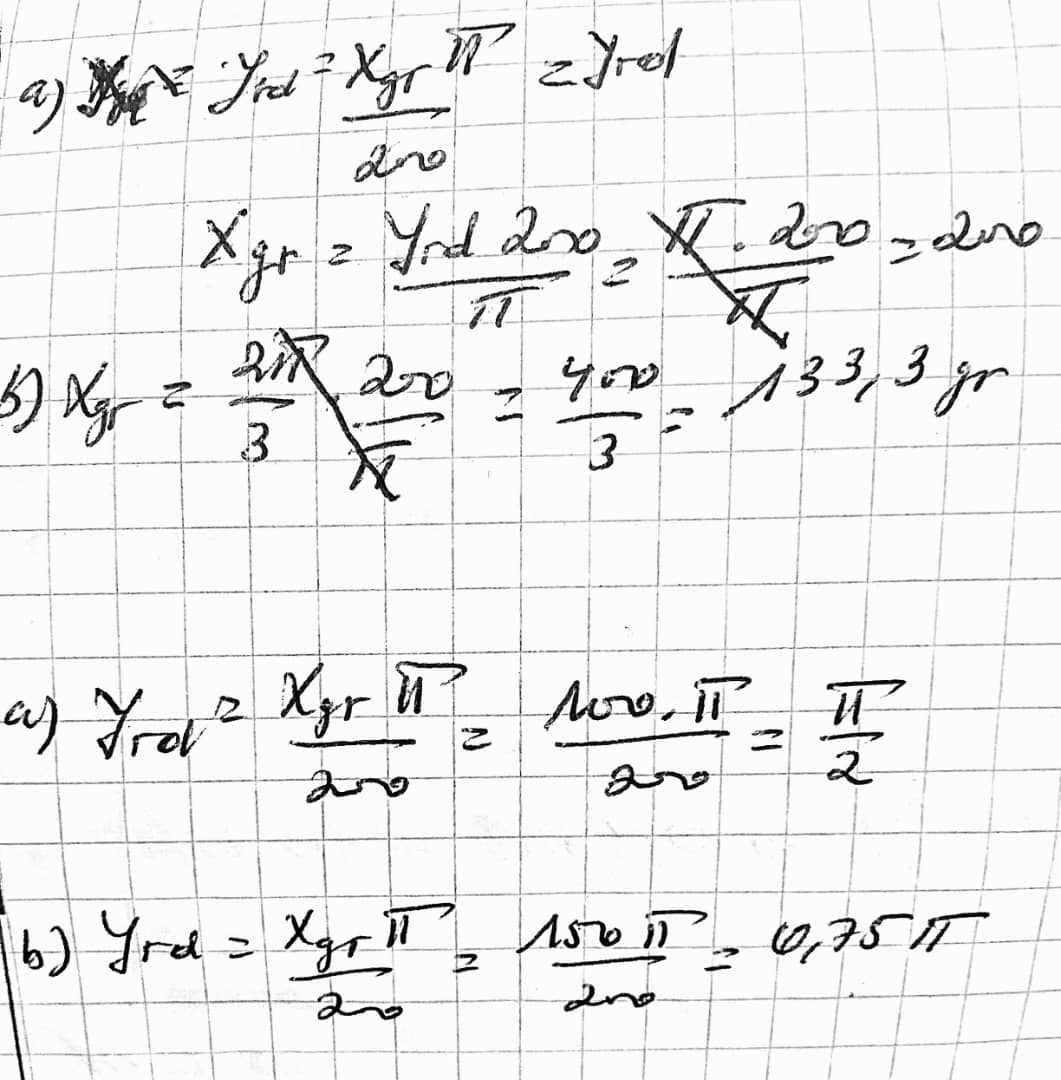 a) yrd = xgr π / 200 = yrd
xgr = yrd 200 / π = π . 200 / π = 200
b) xgr = 2π / 3 . 200 / π = 400 / 3 = 133,3 gr
a) yrd = xgr π / 200 = 100 . π / 200 = π / 2
b) yrd = xgr π / 200 = 150 π / 200 = 0,75 π